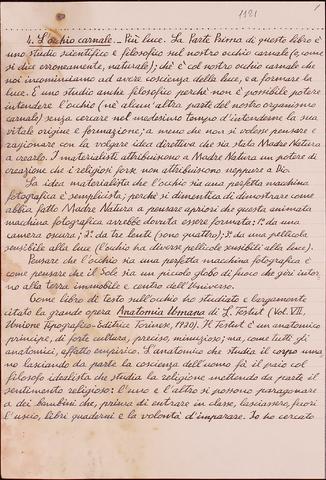 1121
1
4. L'occhio carnale. - Più luce. La Parte Prima di questo libro è
uno studio scientifico e filosofico sul nostro occhio carnale (o, come
si dice erroneamente, naturale); chè è col nostro occhio carnale che
noi incominciamo ad avere coscienza della luce, e a formare la
luce. È uno studio anche filosofico perchè non è possibile potere
intendere l'occhio (nè alcun'altra parte del nostro organismo
carnale) senza cercare nel medesimo tempo d'intenderne la sua
vitale origine e formazione; a meno che non si volesse pensare e
ragionare con la volgare idea direttiva che sia stata Madre Natura
a crearlo. I materialisti attribuiscono a Madre Natura un potere di
creazione che i religiosi forse non attribuiscono neppure a Dio.
La idea materialista che l'occhio sia una perfetta macchina
fotografica è semplicista, perchè si dimentica di dimostrare come
abbia fatto Madre Natura a pensare apriori che questa animata
macchina fotografica avrebbe dovuta essere formata: 1° da una
camera oscura; 2° da tre lenti (sono quattro); 3° da una pellicola
sensibile alla luce (l'occhio ha diverse pellicole sensibili alla luce).
Pensare che l'occhio sia una perfetta macchina fotografica è
come pensare che il Sole sia un piccolo globo di fuoco che giri intor,
no alla terra immobile e centro dell'Universo.
Come libro di testo sull'occhio ho studiato e largamente
citato la grande opera Anatomia Umana di L. Testut (Vol. VII,
Unione Tipografico-Editrice Torinese, 1920). Il Testut è un anatomico
principe, di forte cultura, preciso, minuzioso; ma, come tutti gli
anatomici, affatto empirico. L'anatomico che studia il corpo uma,
no lasciando da parte la coscienza dell'uomo fà il paio col
filosofo idealista che studia la religione mettendo da parte il
sentimento religioso: l'uno e l'altro si possono paragonare
a dei bambini che, prima di entrare in classe, lasciassero, fuori
l'uscio, libri quaderni e la volontà d'imparare. Io ho cercato